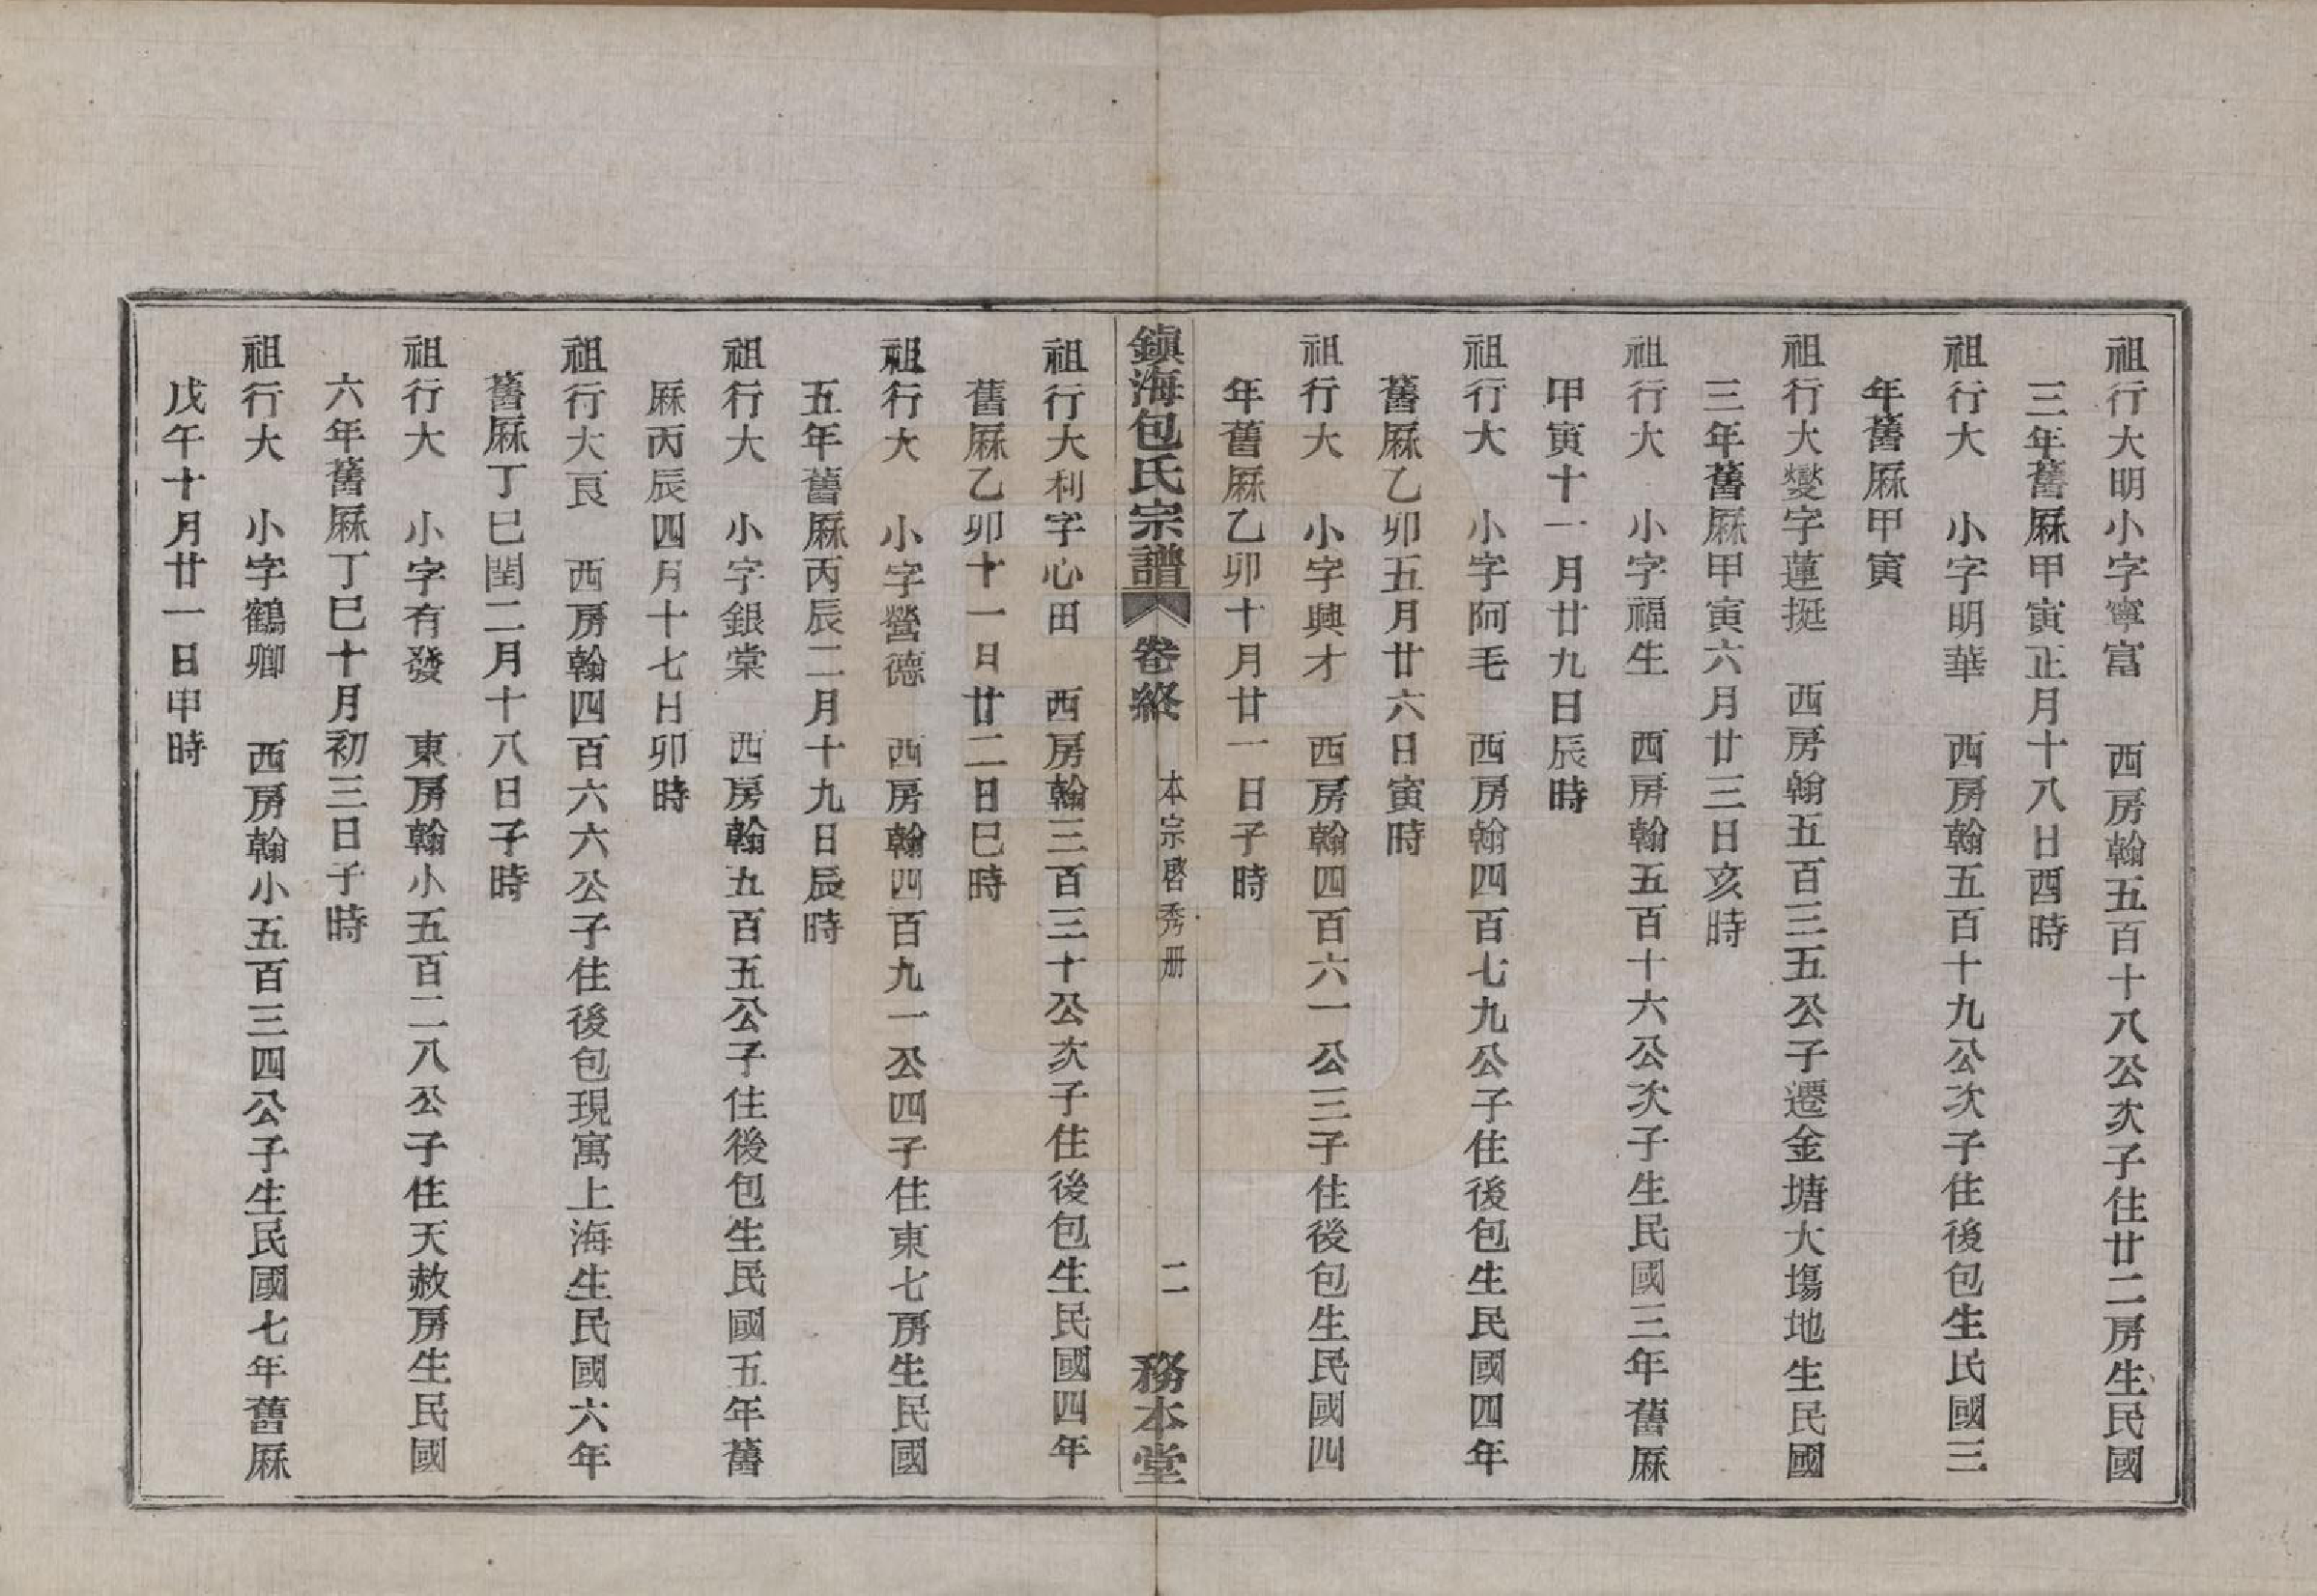 祖行大明小字寧富　西房翰五百十八公次子住廿二房生民國
三年舊厤甲寅正月十八日酉時
祖行大　小字明華　西房翰五百十九公次子住後包生民國三
年舊厤甲寅
祖行大燮字蓮挺　西房翰五百三五公子遷金塘大塲地生民國
三年舊厤甲寅六月廿三日亥時
祖行大　小字福生　西房翰五百十六公次子生民國三年舊厤
甲寅十一月廿九日辰時
祖行大　小字阿毛　西房翰四百七九公子住後包生民國四年
舊厤乙卯五月廿六日寅時
祖行大　小字興才　西房翰四百六一公三子住後包生民國四
年舊厤乙卯十月廿一日子時
鎮海包氏宗譜　卷終　本宗啓秀册　二　務本堂
祖行大利字心田　西房翰三百三十公次子住後包生民國四年
舊厤乙卯十一日廿二日巳時
祖行大　小字營德　西房翰四百九一公四子住東七房生民國
五年舊厤丙辰二月十九日辰時
祖行大　小字銀棠　西房翰九百五公子住後包生民國五年舊
厤丙辰四月十七日卯時
祖行大良　西房翰四百六六公子住後包現寓上海生民國六年
舊厤丁巳閏二月十八日子時
祖行大　小字有發　東房翰小五百二八公子住天赦房生民國
六年舊厤丁巳十月初三日子時
祖行大　小字鶴卿　西房翰小五百三四公子生民國七年舊厤
戊午十月廿一日申時